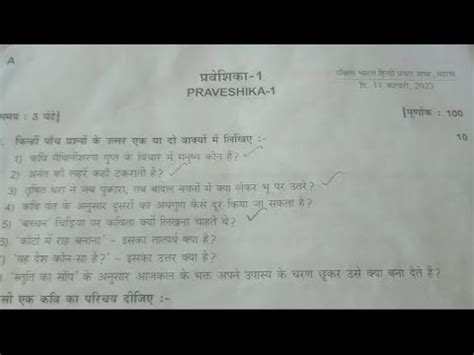 A
प्रवेशिका-1
PRAVESHIKA-1
दक्षिण भारत हिन्दी प्रचार सभा, मद्रास
दि. 12 फरवरी, 2023
समय : 3 घंटे]
[पूर्णांक : 100
किन्हीं पाँच प्रश्नों के उत्तर एक या दो वाक्यों में लिखिए :- 10
1) कवि मैथिलीशरण गुप्त के विचार में मनुष्य कौन है?
2) अनंत की लहरें कहाँ टकराती हैं?
3) तृषित धरा ने जब पुकारा, तब बादल नयनों में क्या लेकर भू पर उतरे?
4) कवि पंत के अनुसार दूसरों का अवगुण कैसे दूर किया जा सकता है?
5) 'बच्चन' चिड़िया पर कविता क्यों लिखना चाहते थे?
) 'काँटों में राह बनाना' - इसका तात्पर्य क्या है?
) 'वह देश कौन-सा है?' - इसका उत्तर क्या है?
) 'स्तुति का साँप' के अनुसार आजकल के भक्त अपने उपास्य के चरण छूकर उसे क्या बना देते हैं?
सी एक कवि का परिचय दीजिए :-